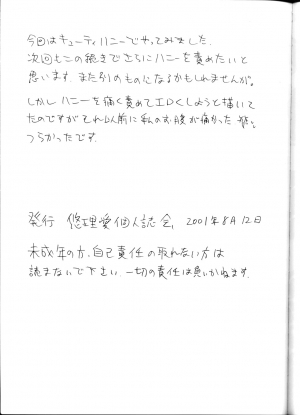 今回はキューティハニーでやってみました.
次回もこの続きでさらにハニーを責めたいと
思います. また別のものになるかもしれませんが。
しかしハニーを痛く責めてエロくしようと描いて
たのですがそれ以前に私のお腹が痛かった
つらかったです.
発行 悠理愛個人誌会, 2001年8月12日
未成年の方、自己責任の取れない方は
読まないで下さい. 一切の責任は負いかねます.